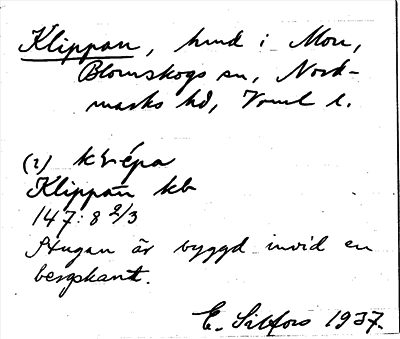 Klippan, hmd i Mon,
Blomskogs sn, Nord-
marks hd, Vrml l.
(1)
Klippan kb
147:8 2/3
Stugan är byggd invid en
bergskant.
E. Sibfors 1937.